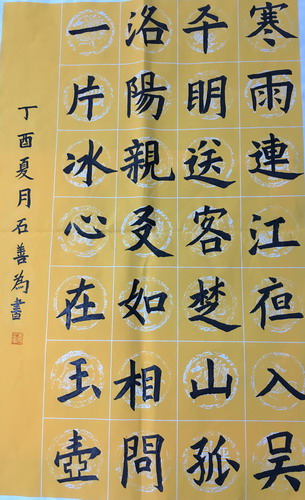 寒雨連江夜入吳
平明送客楚山孤
洛陽親友如相問
一片冰心在玉壺
丁酉夏月石善為書